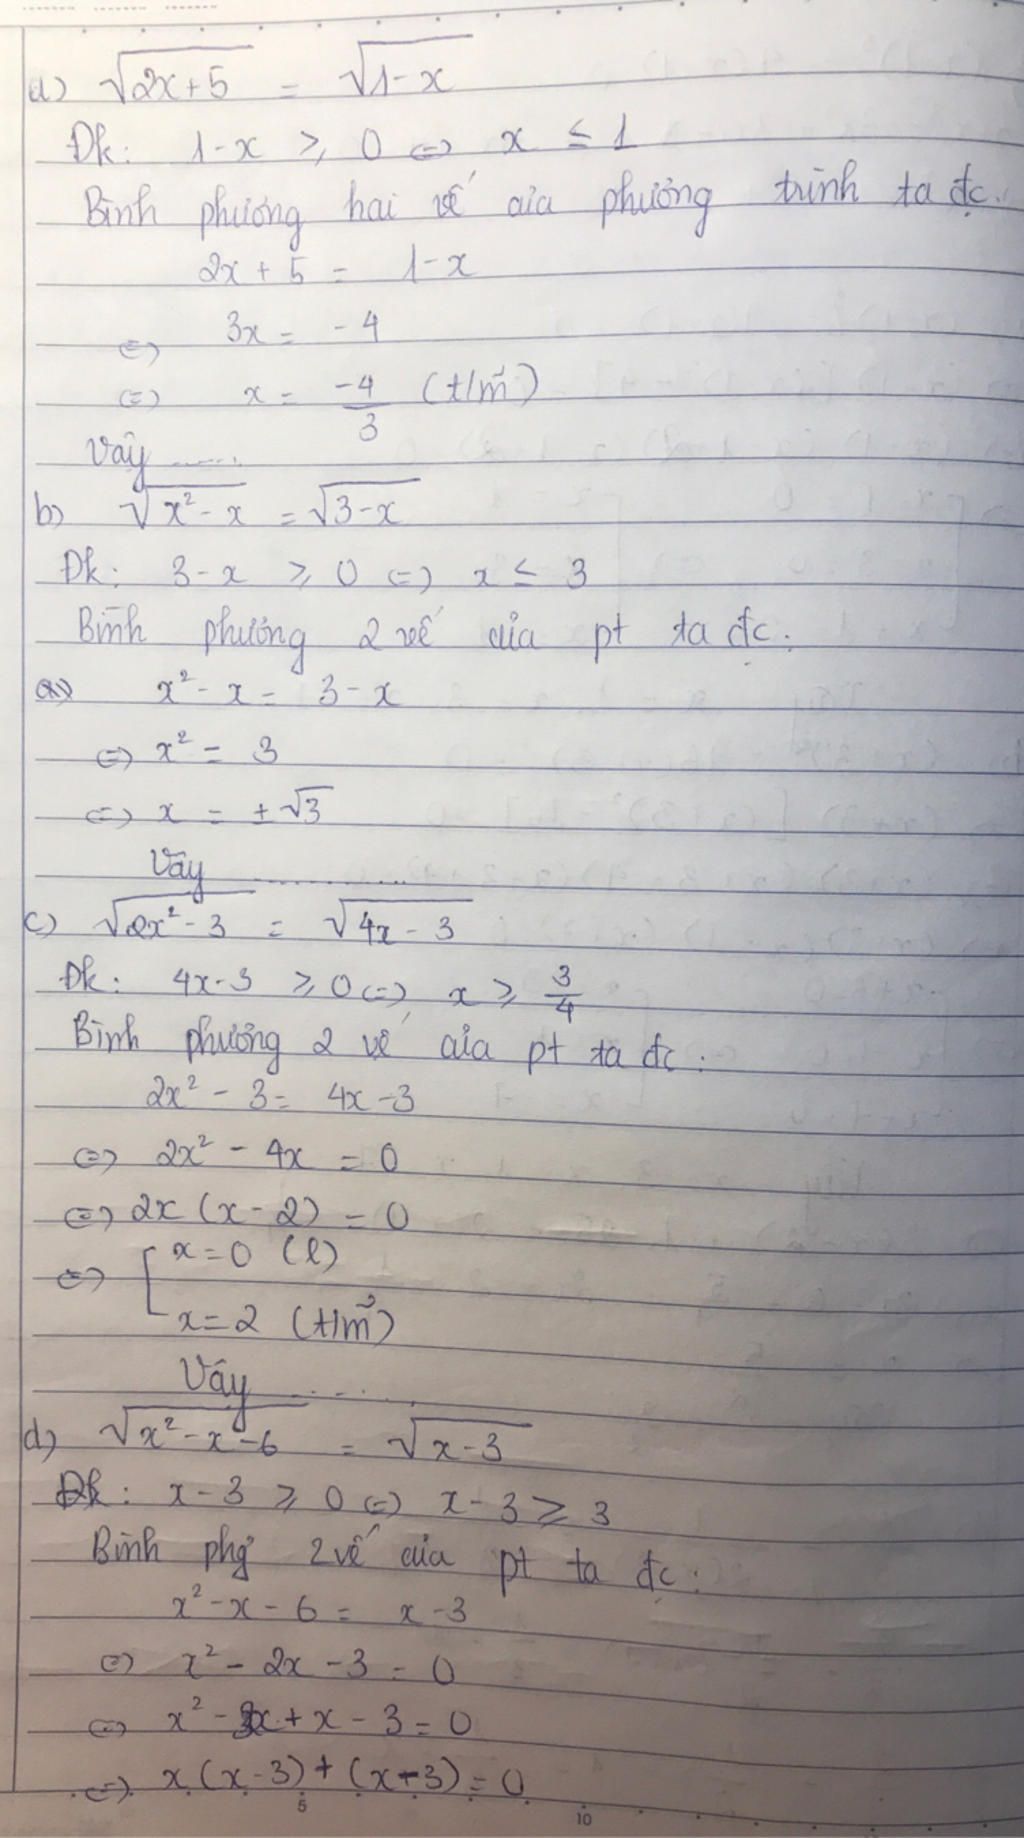 a) √(2x+5) = √(1-x)
Đk: 1-x ⩾ 0 <=> x ≤ 1
Bình phương hai vế của phương trình ta đc.
2x + 5 = 1-x
<=> 3x = -4
<=> x = -4/3 (t/m)
Vậy ......
b) √(x² - x) = √(3-x)
Đk: 3-x ⩾ 0 <=> x ≤ 3
Bình phương 2 vế của pt ta đc:
x² - x = 3 - x
<=> x² = 3
<=> x = ±√3
Vậy ............
c) √(2x² - 3) = √(4x - 3)
Đk: 4x-3 ⩾ 0 <=> x ⩾ 3/4
Bình phương 2 vế của pt ta đc:
2x² - 3 = 4x - 3
<=> 2x² - 4x = 0
<=> 2x (x - 2) = 0
<=> [ x = 0 (l)
x = 2 (t/m)
Vậy .....
d) √(x² - x - 6) = √(x-3)
Đk: x - 3 ⩾ 0 <=> x - 3 ≥ 3
Bình phg 2 vế của pt ta đc:
x² - x - 6 = x - 3
<=> x² - 2x - 3 = 0
<=> x² - 3x + x - 3 = 0
<=> x (x-3) + (x-3) = 0
5 10